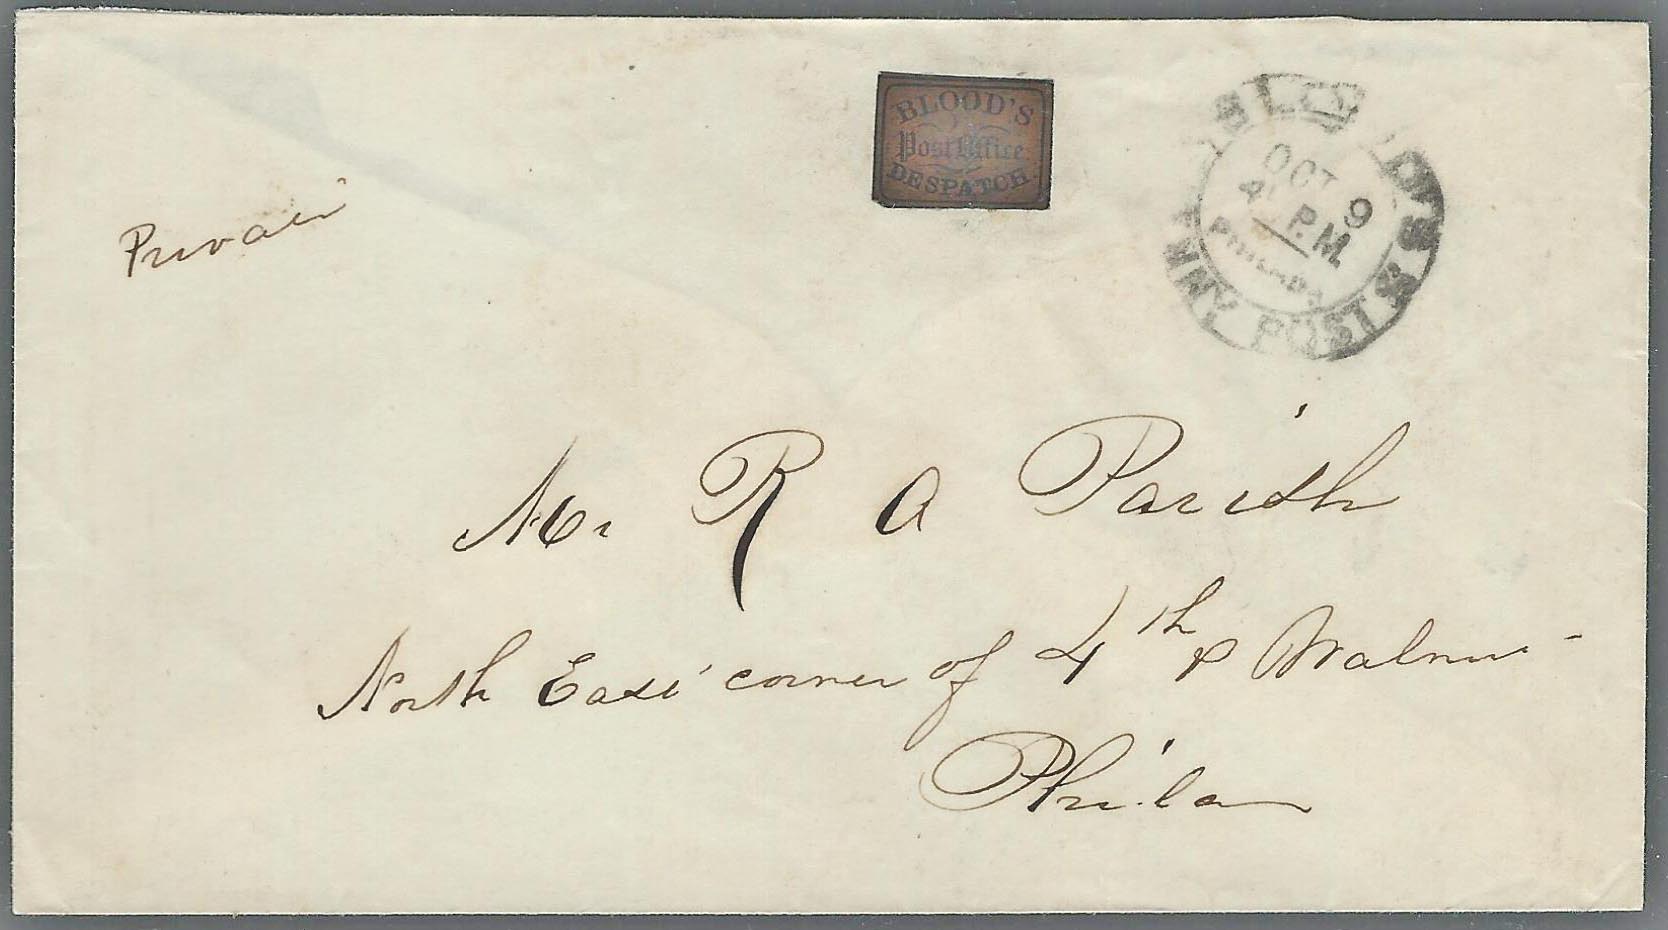 BLOOD'S
Post Office
DESPATCH
BLOOD'S
OCT 9
P.M.
PHILADA
NNY POST
Private
Mr R A Parish
North East corner of 4th & Walnut
Phila